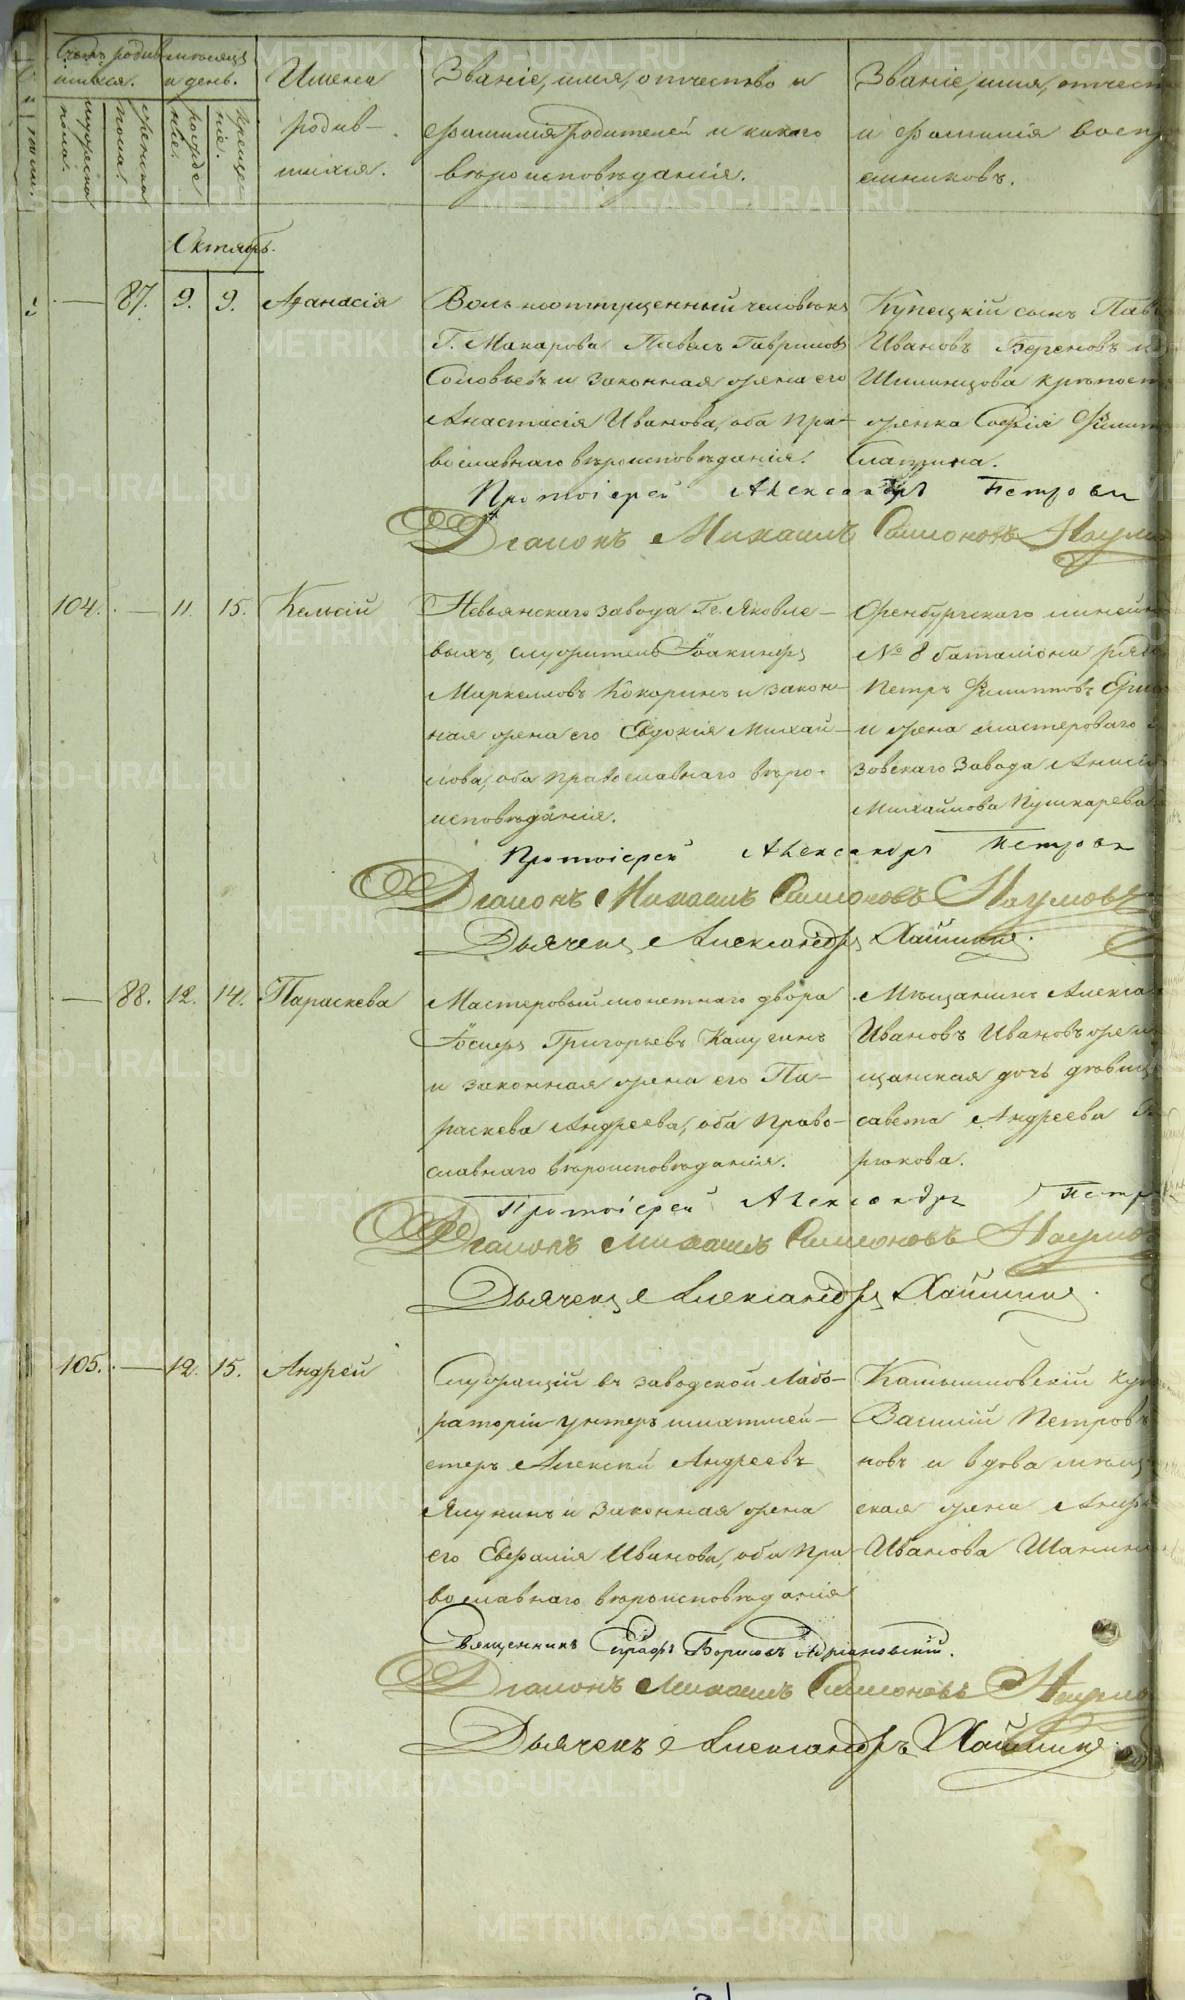 Счетъ родив- мѣсяцъ
шихся. и день.
мужеска пола.
женска пола.
рожде ніе.
креще ніе.
Имена
родив-
шихся.
Званіе, имя, отчество и
фамилія родителей и какого
вѣроисповѣданія.
Званіе, имя, отчест
и фамилія восп
емниковъ.
Октябрь.
— 87. 9. 9. Афанасія
Вольноотпущенный человѣкъ
Г. Макарова Павелъ Гавриловъ
Соловьевъ и законная жена его
Анастасія Иванова, оба пра-
вославнаго вѣроисповѣданія.
Купецкій сынъ Пав
Ивановъ
крѣпост
женка Софія
Протоіерей Александръ Петровъ
Діаконъ Михаилъ Симоновъ Наумо
104. — 11. 15. Кельсій
Невьянскаго завода Гг. Яковле-
выхъ, служитель Іоакинфъ
Маркелловъ Кокаринъ и закон-
ная жена его Евдокія Михай-
лова, оба православнаго вѣро-
исповѣданія.
Оренбургскаго линейн
№ 8 баталіона ряд
Петръ Филипповъ
и жена мастероваго
зовскаго завода Аниси
Михайлова Пушкарева
Протоіерей Александръ Петровъ
Діаконъ Михаилъ Симоновъ Наумовъ
Дьячекъ Александръ Хайминъ.
— 88. 12. 14. Параскева
Мастеровый монетнаго двора
Іосифъ Григорьевъ Капусинъ
и законная жена его Па-
раскева Андреева, оба право-
славнаго вѣроисповѣданія.
Мѣщанинъ Алекса
Ивановъ Ивановъ
щанская дочь дѣвиц
савета Андреева
рюкова.
Протоіерей Александръ Петр
Діаконъ Михаилъ Симоновъ Наумов
Дьячекъ Александръ Хайминъ.
105. — 12. 15. Андрей
Служащій въ заводской Лабо-
раторіи унтеръ шихтмей-
стеръ Алексѣй Андреевъ
Якунинъ и законная жена
его Евфалія Иванова, оба пра
вославнаго вѣроисповѣданія
Камышловскій куп
Василій Петров
новъ и вдова мѣщ
ская жена Анф
Иванова Шанин
Священникъ Борисовъ Адріановскій.
Діаконъ Михаилъ Симоновъ Наумо
Дьячекъ Александръ Хайминъ.